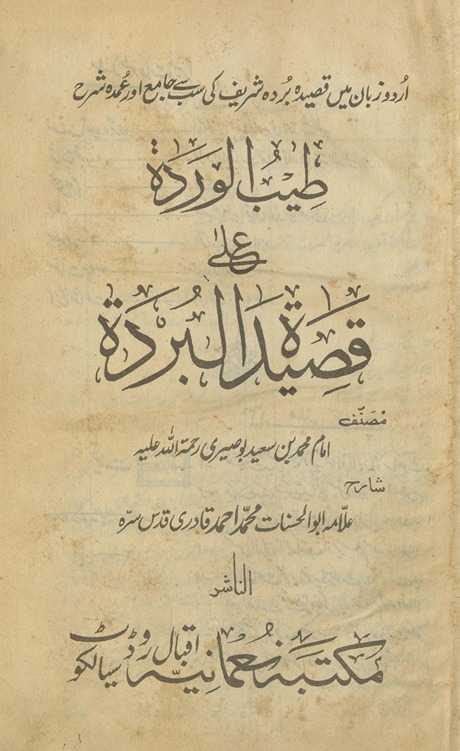 اُردو زبان میں قصیدہ بُردہ شریف کی سب سے جامع اور عُمدہ شرح
طِیبُ الوَردَۃ
علیٰ
قَصِیدَۃ البُردَۃ
مُصَنّف
امام محمد بن سعید بوصیری رحمۃ اللہ علیہ
شارح
علّامہ ابوالحسنات محمّد احمد قادری قدس سرہ
الناشر
مکتبہ نعمانیہ اقبال روڈ سیالکوٹ